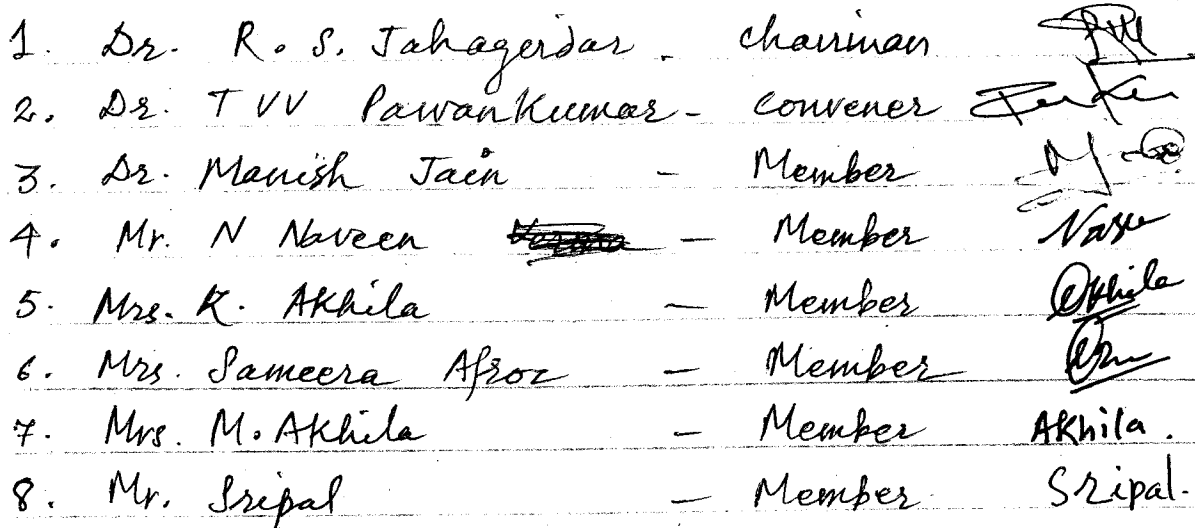 1. Dr. R. S. Jahagerdar - chairman
2. Dr. T VV Pawan Kumar - convener
3. Dr. Manish Jain - Member
4. Mr. N Naveen - Member
5. Mrs. K. Akhila - Member Akhila
6. Mrs. Sameera Afroz - Member
7. Mrs. M. Akhila - Member Akhila.
8. Mr. Sripal - Member Sripal.